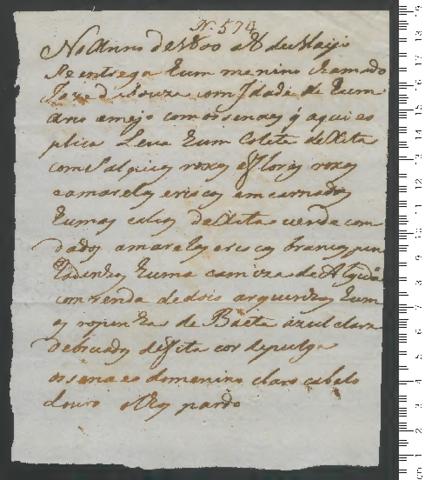 N. 574
No Anno de 1800 a 8 de Mayo
Se entrega hum menino chamado
Jozé de Souza com Idade de hum
ano e mejo com os senaes q aqui es
plica Leva hum Coleta de Xita
com salpicos roxos e flores roxas
e amarelas e riscas emcarnadas
humas de Xita verde com
dados amarelos e riscas brancas
huma camiza de Algudã
com renda de dois hum
as ropinhas de Baeta azul clara
debruadas de fita cor de pulga
os senaes do menino claro cabelo
Louro olhos pardo